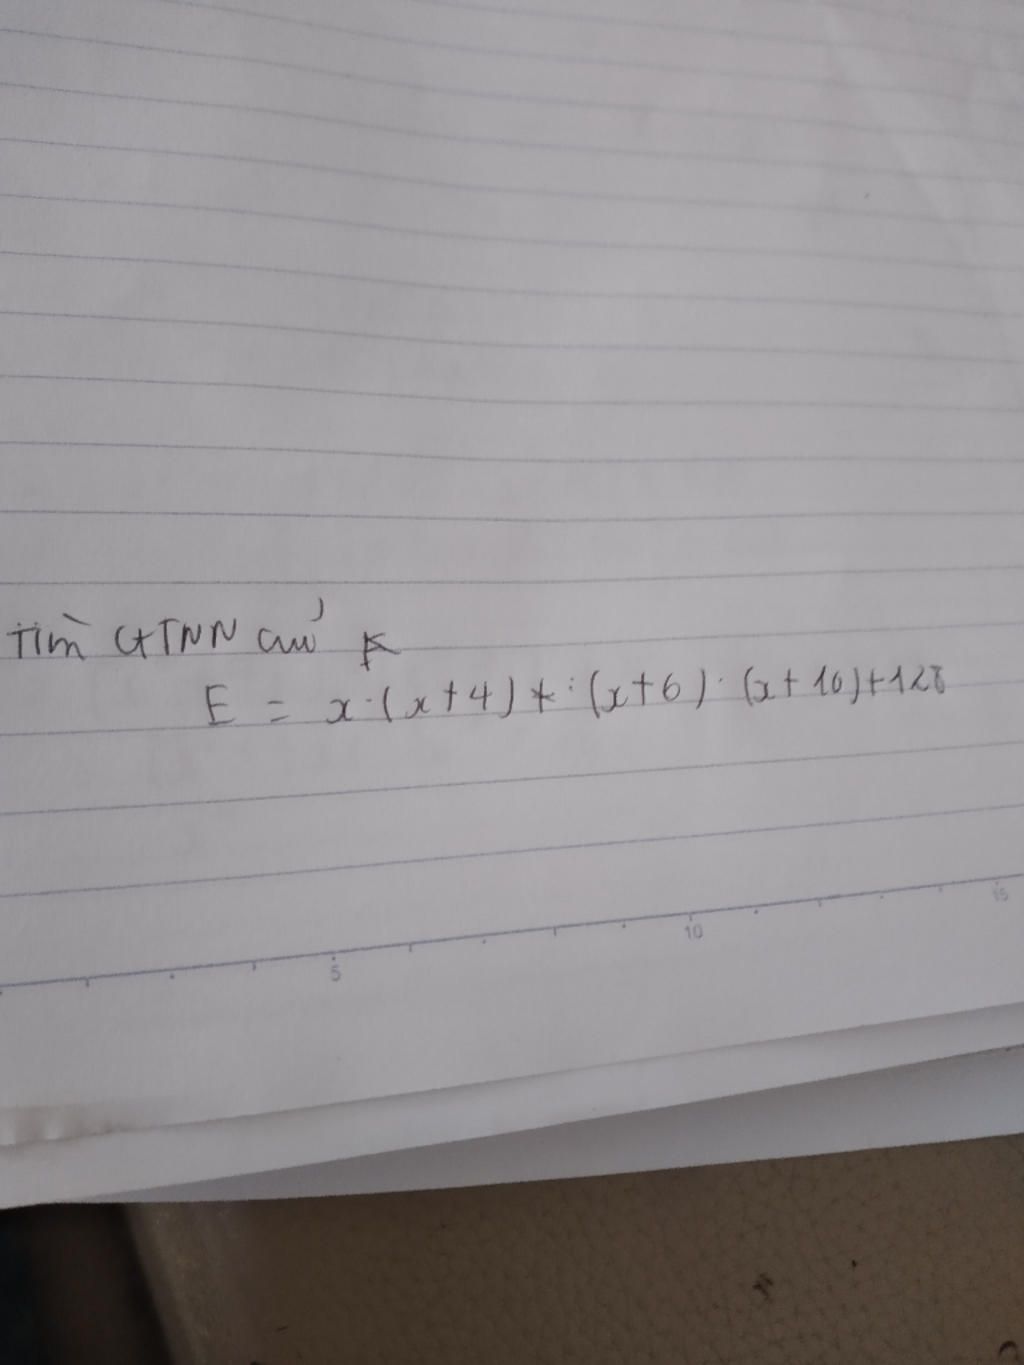 Tìm GTNN củ
E = x.(x+4).(x+6).(x+10)+128
5
10
15